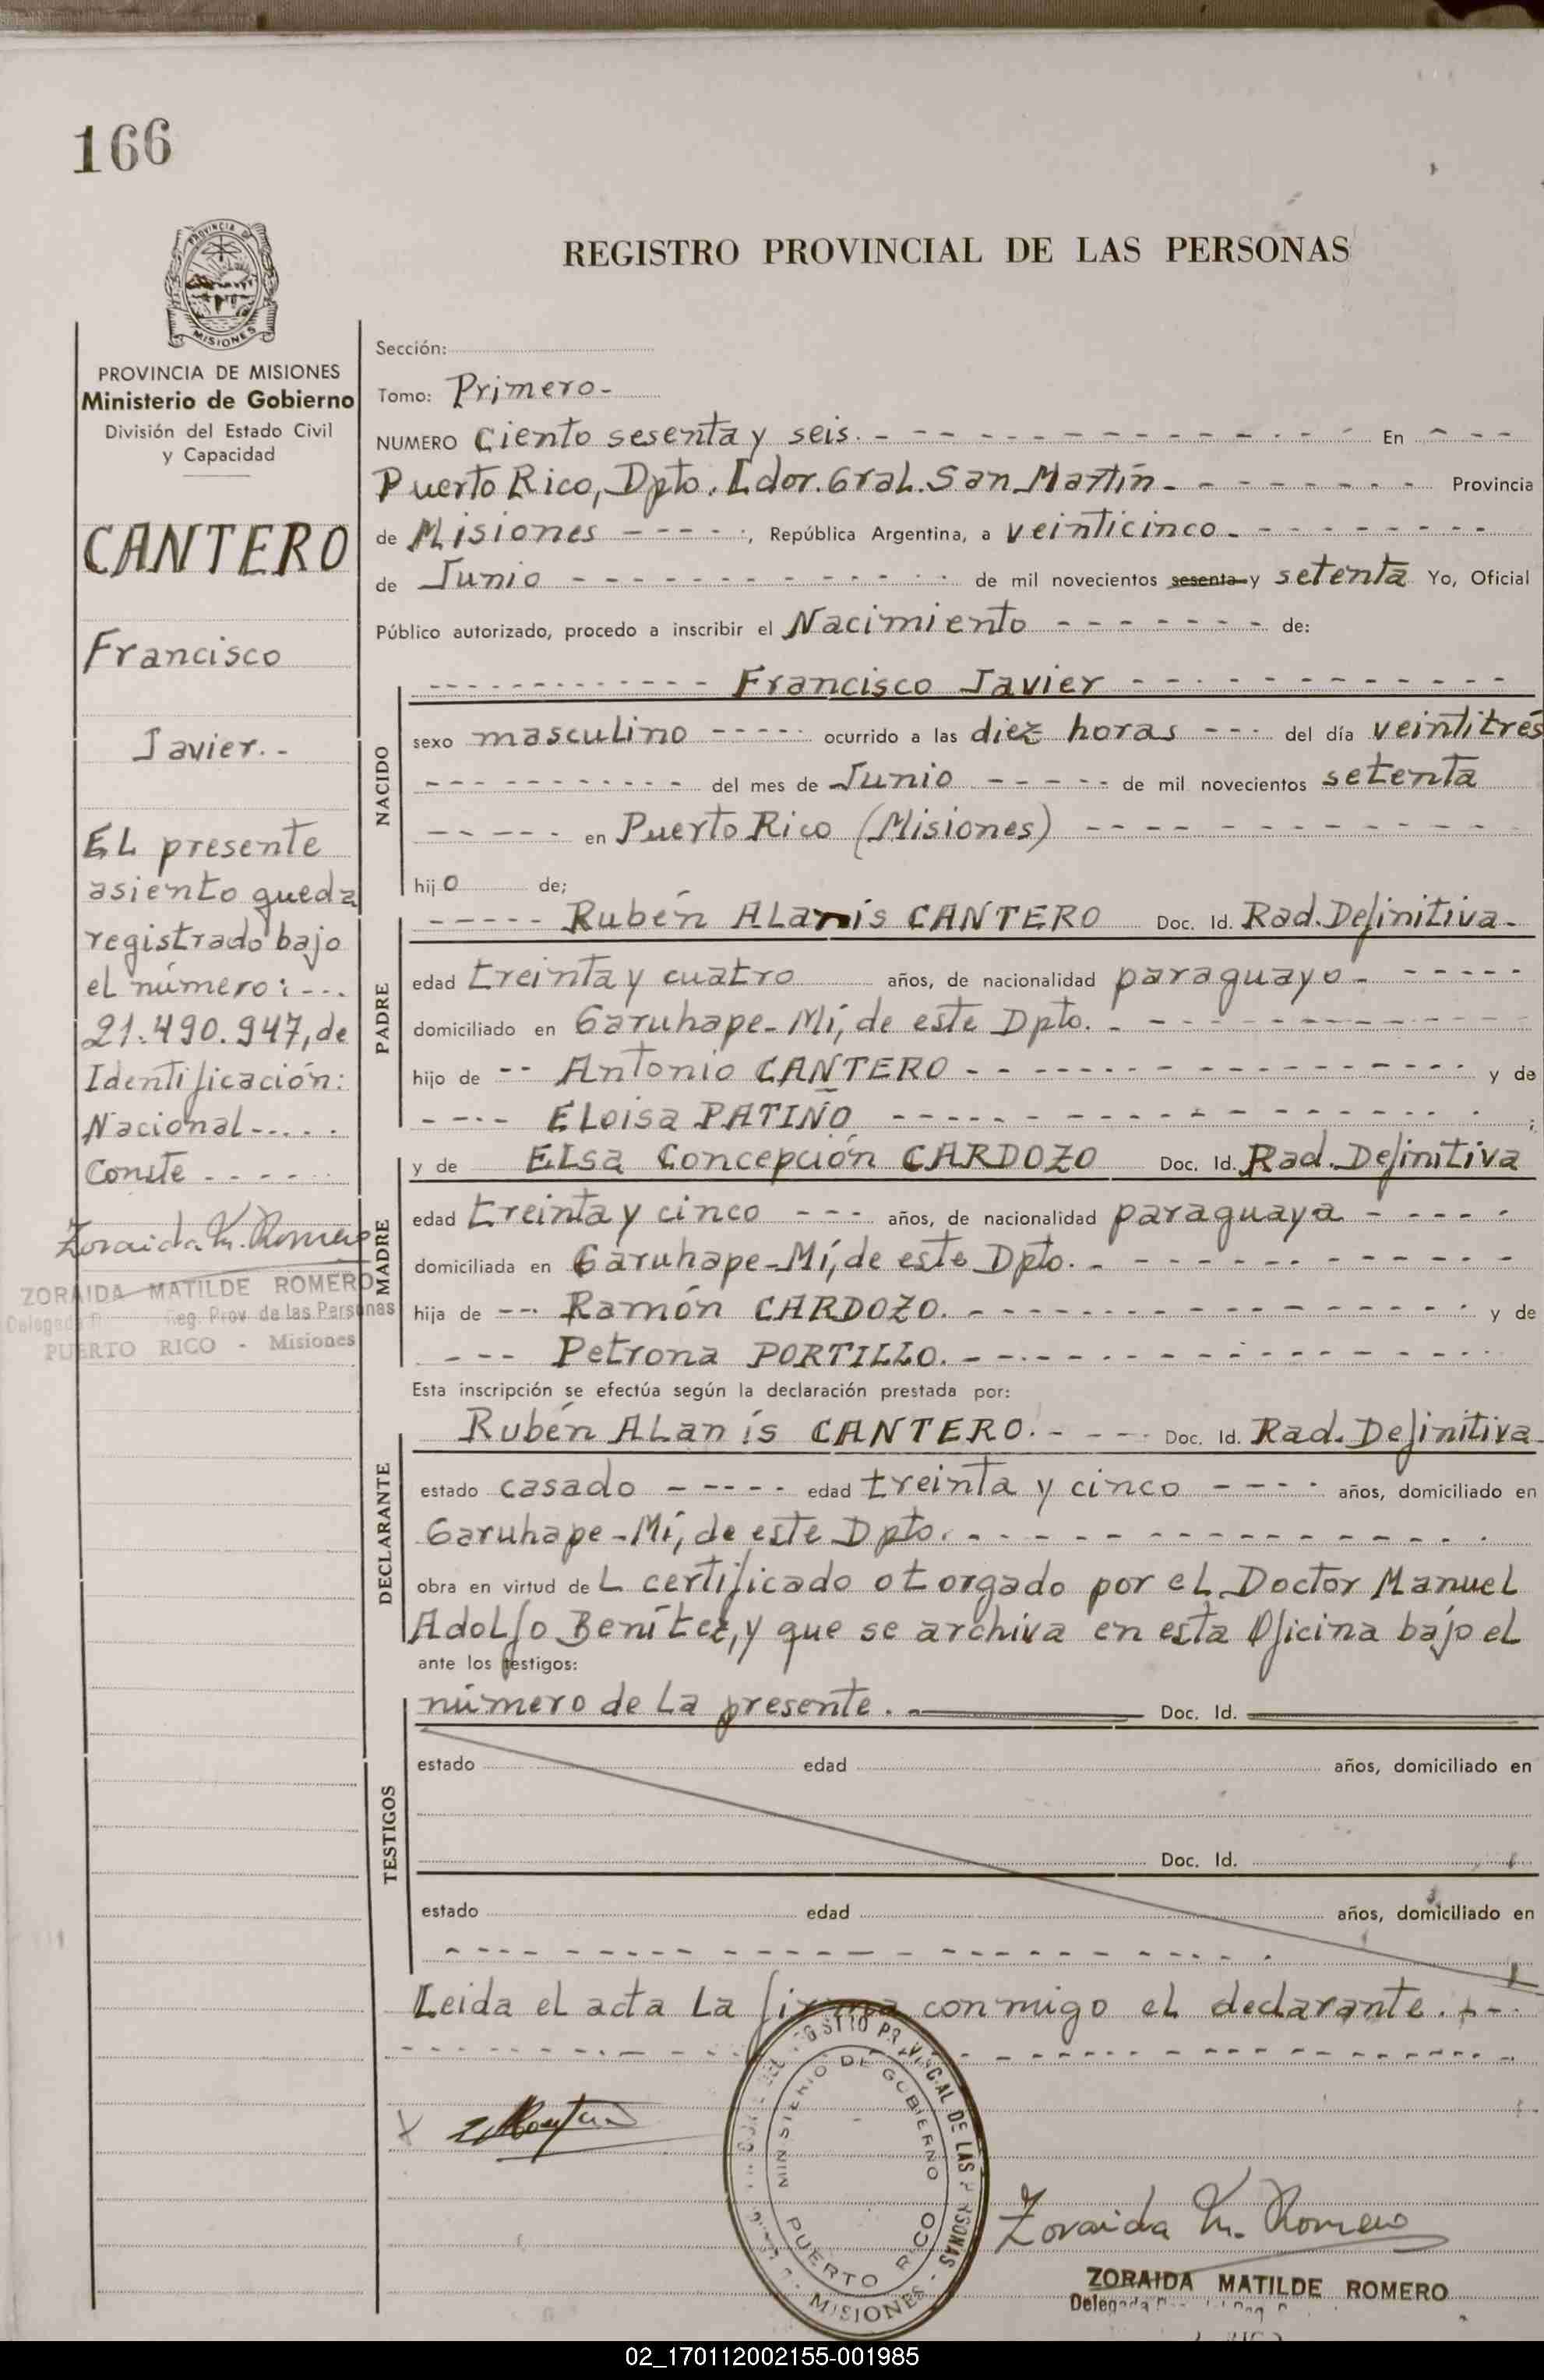 166
PROVINCIA DE
MISIONES
REGISTRO PROVINCIAL DE LAS PERSONAS
PROVINCIA DE MISIONES
Ministerio de Gobierno
División del Estado Civil
y Capacidad
CANTERO
Francisco
Javier.-
EL presente
asiento queda
registrado bajo
el número: ---
21.490.947, de
Identificación:
Nacional-----
Conste -----
Zoraida M. Romero
ZORAIDA MATILDE ROMERO
Delegada Reg. Prov. de las Personas
PUERTO RICO - Misiones
Sección:
Tomo: Primero-
NUMERO Ciento sesenta y seis. - - - - - - En - - -
Puerto Rico, Dpto. Ldor. Gral. San Martín - - - - - Provincia
de Misiones - - - -, República Argentina, a veinticinco - - - - -
de Junio - - - - - - de mil novecientos sesenta y setenta Yo, Oficial
Público autorizado, procedo a inscribir el Nacimiento - - - - - de:
NACIDO
- - - - - Francisco Javier - - - - -
sexo masculino - - - - - ocurrido a las diez horas - - - del día veintitrés
- - - - - del mes de Junio - - - - - de mil novecientos setenta
- - - - - en Puerto Rico (Misiones) - - - - -
hijo de;
PADRE
- - - - - Rubén ALanís CANTERO Doc. Id. Rad. Definitiva-
edad treinta y cuatro años, de nacionalidad paraguayo - - - - -
domiciliado en Garuhape-Mí, de este Dpto. - - - - -
hijo de -- Antonio CANTERO - - - - - y de
- - - - ELoisa PATIÑO - - - - - ;
MADRE
y de ELsa Concepción CARDOZO Doc. Id. Rad. Definitiva
edad treinta y cinco - - - años, de nacionalidad paraguaya - - - - -
domiciliada en Garuhape-Mí, de este Dpto. - - - - -
hija de --- Ramón CARDOZO. - - - - - y de
- - - Petrona PORTILLO. - - - - -
Esta inscripción se efectúa según la declaración prestada por:
DECLARANTE
Rubén ALanís CANTERO. - - - - Doc. Id. Rad. Definitiva-
estado casado - - - - - edad treinta y cinco - - - - años, domiciliado en
Garuhape-Mí, de este Dpto. - - - - -
obra en virtud deL certificado otorgado por eL Doctor Manuel
AdoLfo Benítez, y que se archiva en esta Oficina bajo el
ante los testigos:
TESTIGOS
número de La presente. - Doc. Id.
estado edad años, domiciliado en
Doc. Id.
estado edad años, domiciliado en
Leida el acta La firma conmigo el declarante. - - -
MINISTERIO DE GOBIERNO
PUERTO RICO
MISIONES
Zoraida M. Romero
ZORAIDA MATILDE ROMERO
02_170112002155-001985